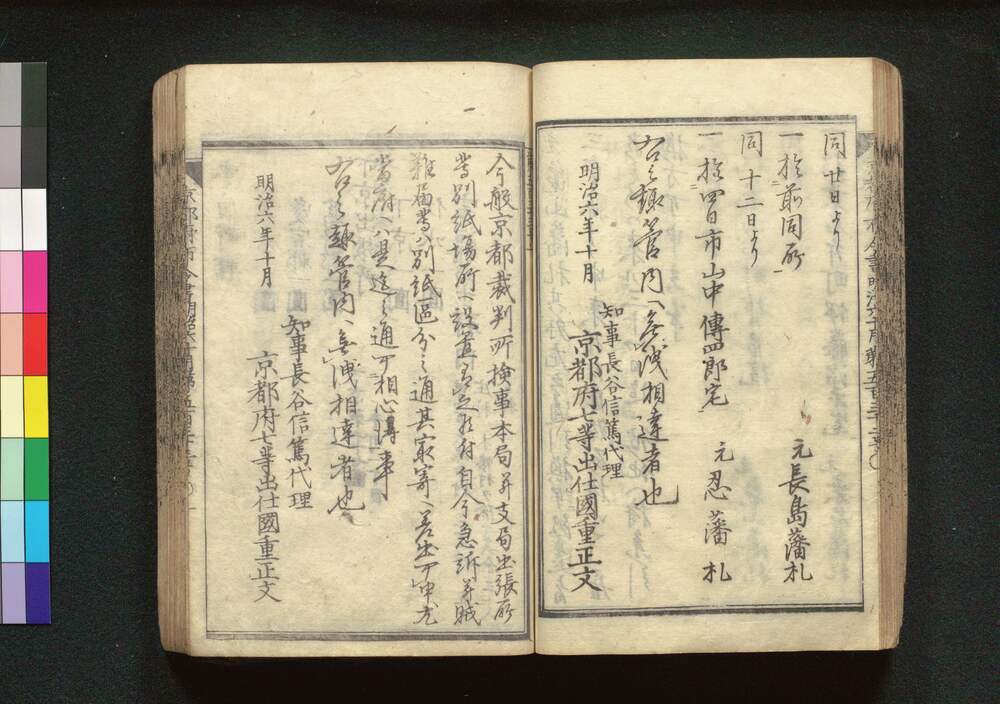 同廿日より
一於前同所
元長島藩札
同十二日より
一於四日市山中傳四郎宅
元忍藩札
右之趣管内ヘ無洩相達者也
明治六年十月
知事長谷信篤代理
京都府七等出仕國重正文
今般京都裁判所検事本局并支局出張所
等別紙場所ヘ設置有之候付自今急訴并賊
難届等ハ別紙区分之通其最寄ヘ差出可申尤
當府ヘハ是迄之通可相心得事
右之趣管内ヘ無洩相達者也
明治六年十月
知事長谷信篤代理
京都府七等出仕國重正文